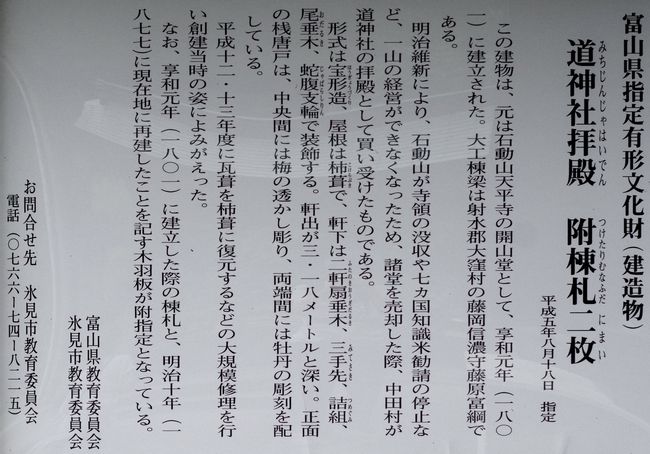 富山県指定有形文化財(建造物)
道神社拝殿 附棟札二枚
みちじんじゃはいでん つけたりむなふだ にまい
平成五年八月十八日 指定
この建物は、元は石動山天平寺の開山堂として、享和元年(一八〇
一)に建立された。大工棟梁は射水郡大窪村の藤岡信濃守藤原富綱で
ある。
明治維新により、石動山が寺領の没収や七カ国知識米勧請の停止な
ど、一山の経営ができなくなったため、諸堂を売却した際、中田村が
道神社の拝殿として買い受けたものである。
形式は宝形造、屋根は杮葺で、軒下は二軒扇垂木、三手先、詰組、
尾垂木、蛇腹支輪で装飾する。軒出が三・一八メートルと深い。正面
の桟唐戸は、中央間には梅の透かし彫り、両端間には牡丹の彫刻を配
している。
平成十二・十三年度に瓦葺を杮葺に復元するなどの大規模修理を行
い創建当時の姿によみがえった。
なお、享和元年(一八〇一)に建立した際の棟札と、明治十年(一
八七七)に現在地に再建したことを記す木羽板が附指定となっている。
富山県教育委員会
氷見市教育委員会
お問合せ先 氷見市教育委員会
電話(〇七六六ー七四ー八二一五)